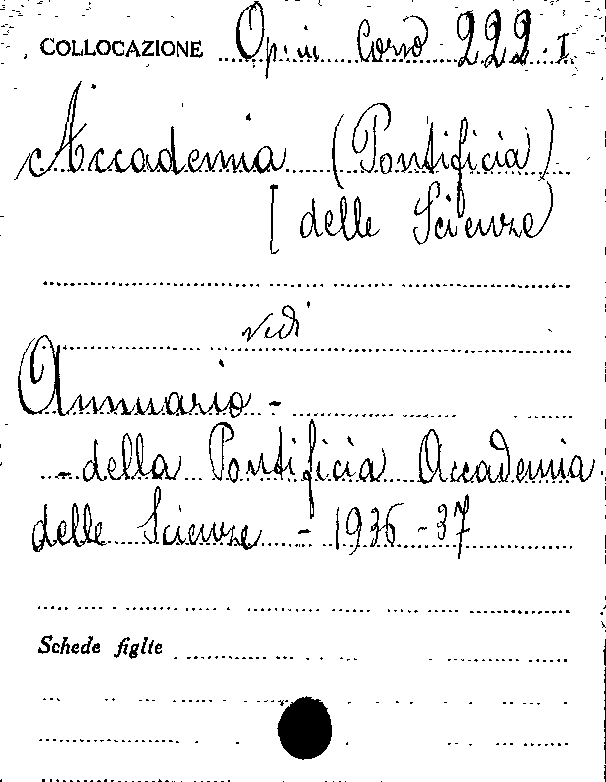 COLLOCAZIONE Op. in Corso 222. I
Accademia (Pontificia)
[delle Scienze)
vedi
Annuario -
- della Pontificia Accademia
delle Scienze - 1936-37
Schede figlie